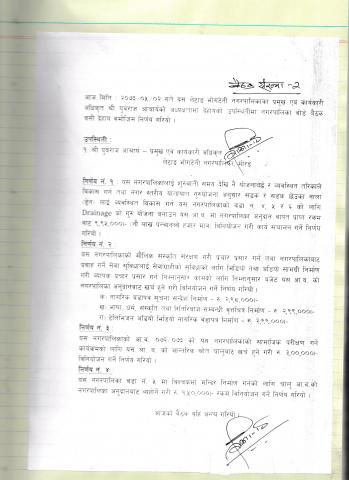 बैठक संख्या - २
आज मिति : २०७३/०५/०२ गते यस लेटाङ भोगटेनी नगरपालिकाका प्रमुख एवं कार्यकारी
अधिकृत श्री युवराज आचार्यको अध्यक्षतामा देहायको उपस्थितीमा नगरपालिका बोर्ड बैठक
बसी देहाय बमोजिम निर्णय गरियो ।
उपस्थिती :
१. श्री युवराज आचार्य - प्रमुख एवं कार्यकारी अधिकृत
लेटाङ भोगटेनी नगरपालिका, मोरङ
निर्णय नं. १ : यस नगरपालिकालाई शुरुवाती समय देखि नै योजनावद्ध र व्यवस्थित तरिकाले
विकास गर्न तथा नगर स्तरीय यातायात गुरुयोजना अनुसार सडक र सडक छेउका नाला
(ड्रेन) लाई व्यवस्थित विकास गर्न यस नगरपालिकाको वडा नं. ४, ५ र ६ को लागि
Drainage को गुरु योजना बनाउन यस आ.व. मा नगरपालिका अनुदान वापत प्राप्त रकम
बाट ९,९५,०००/- (नौ लाख पन्चानब्बे हजार मात्र) विनियोजन गरी कार्य संचालन गर्ने निर्णय
गरियो ।
निर्णय नं. २ :
यस नगरपालिकाको मौलिक संस्कृति संरक्षण गरी प्रचार प्रसार गर्न तथा नगरपालिकाबाट
प्रवाह गर्ने सेवा सुविधालाई सेवाग्राहीको सुविधाको लागि भिडियो तथा अडियो सामग्री निर्माण
गरी व्यापक प्रचार प्रसार गर्न निम्नानुसार कामको लागि निम्नानुसार बजेट यस आ.व. को
नगरपालिका अनुदानबाट खर्च हुने गरी विनियोजन गर्ने निर्णय गरियो ।
क: नागरिक वडापत्र सूचना सन्देश निर्माण - रु. २,९८,०००/-
ख: भाषा, धर्म, संस्कृति तथा रितिरिवाज सम्बन्धी वृत्तचित्र निर्माण - रु. २,९९,०००/-
ग: टेलिभिजन अडियो भिडियो नागरिक वडापत्र निर्माण - रु. २,९९,०००/-
निर्णय नं. ३ :
यस नगरपालिकाको आ.व. ०७२/०७३ को यस नगरपालिकाको सामाजिक परीक्षण गर्ने
कार्यक्रमको लागि यस आ. व. को आन्तरिक श्रोत चालुबाट खर्च हुने गरी रु. ३,००,०००/-
विनियोजन गर्ने निर्णय गरियो ।
निर्णय नं. ४
यस नगरपालिका वडा नं. ५ मा मन्दिर निर्माण गर्नको लागि चालु आ.व.को
नगरपालिका अनुदानबाट व्यहोर्ने गरी रु. रकम विनियोजन गर्ने निर्णय गरियो ।
आजको बैठक यहि अन्त्य गरियो ।